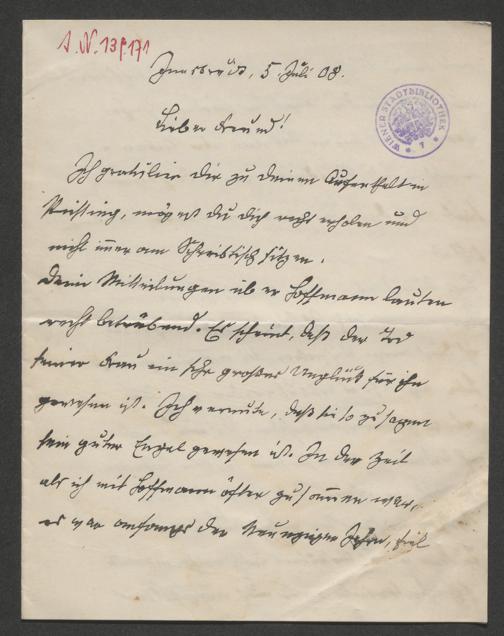 I.N. 138171
Innsbruck, 5. Juli 08.
WIENER STADTBIBLIOTHEK
Lieber Freund!
Ich gratuliere Dir zu Deinem Aufenthalt in
mögest Du Dich recht erholen und
nicht immer am Schreibtisch sitzen.
Deine Mitteilungen über Hoffmann lauten
recht betrübend. Es scheint, daß der Tod
seiner Frau ein sehr großes Unglück für ihn
gewesen ist. Ich vermute, daß sie so zu sagen
sein guter Engel gewesen ist. In der Zeit
als ich mit Hoffmann öfter zusammen war,
es war anfangs der Neunziger Jahre, fiel